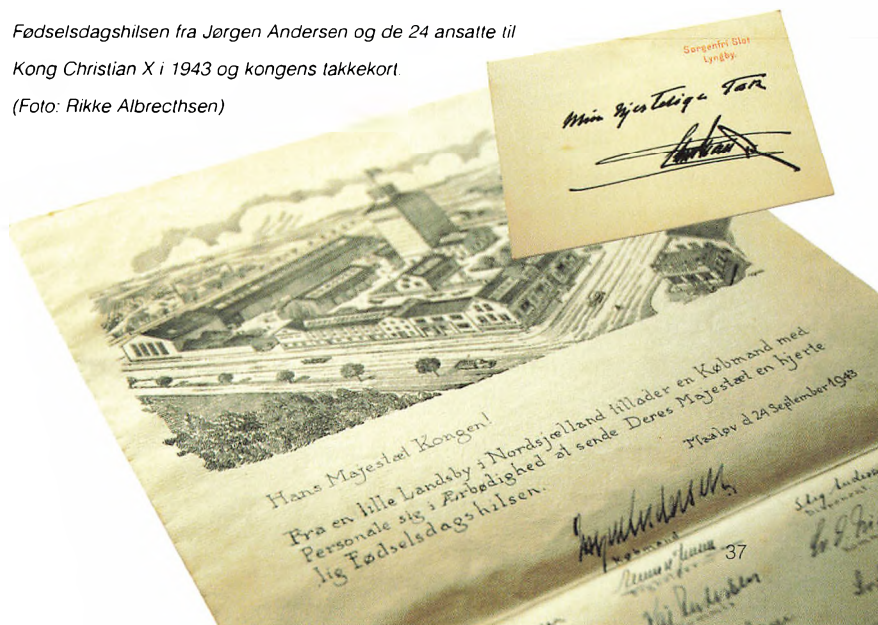 Fødselsdagshilsen fra Jørgen Andersen og de 24 ansatte til
Kong Christian X i 1943 og kongens takkekort.
(Foto: Rikke Albrecthsen)
Sorgenfri Slot
Lyngby.
Min hjertelige Tak
Hans Majestæt Kongen!
Fra en lille Landsby i Nordsjælland tillader en Købmand med
Personale sig i Ærbødighed at sende Deres Majestæt en hjerte
lig Fødselsdagshilsen.
Maaløv d 24 September 1943
Jørgen Andersen
Købmand
37